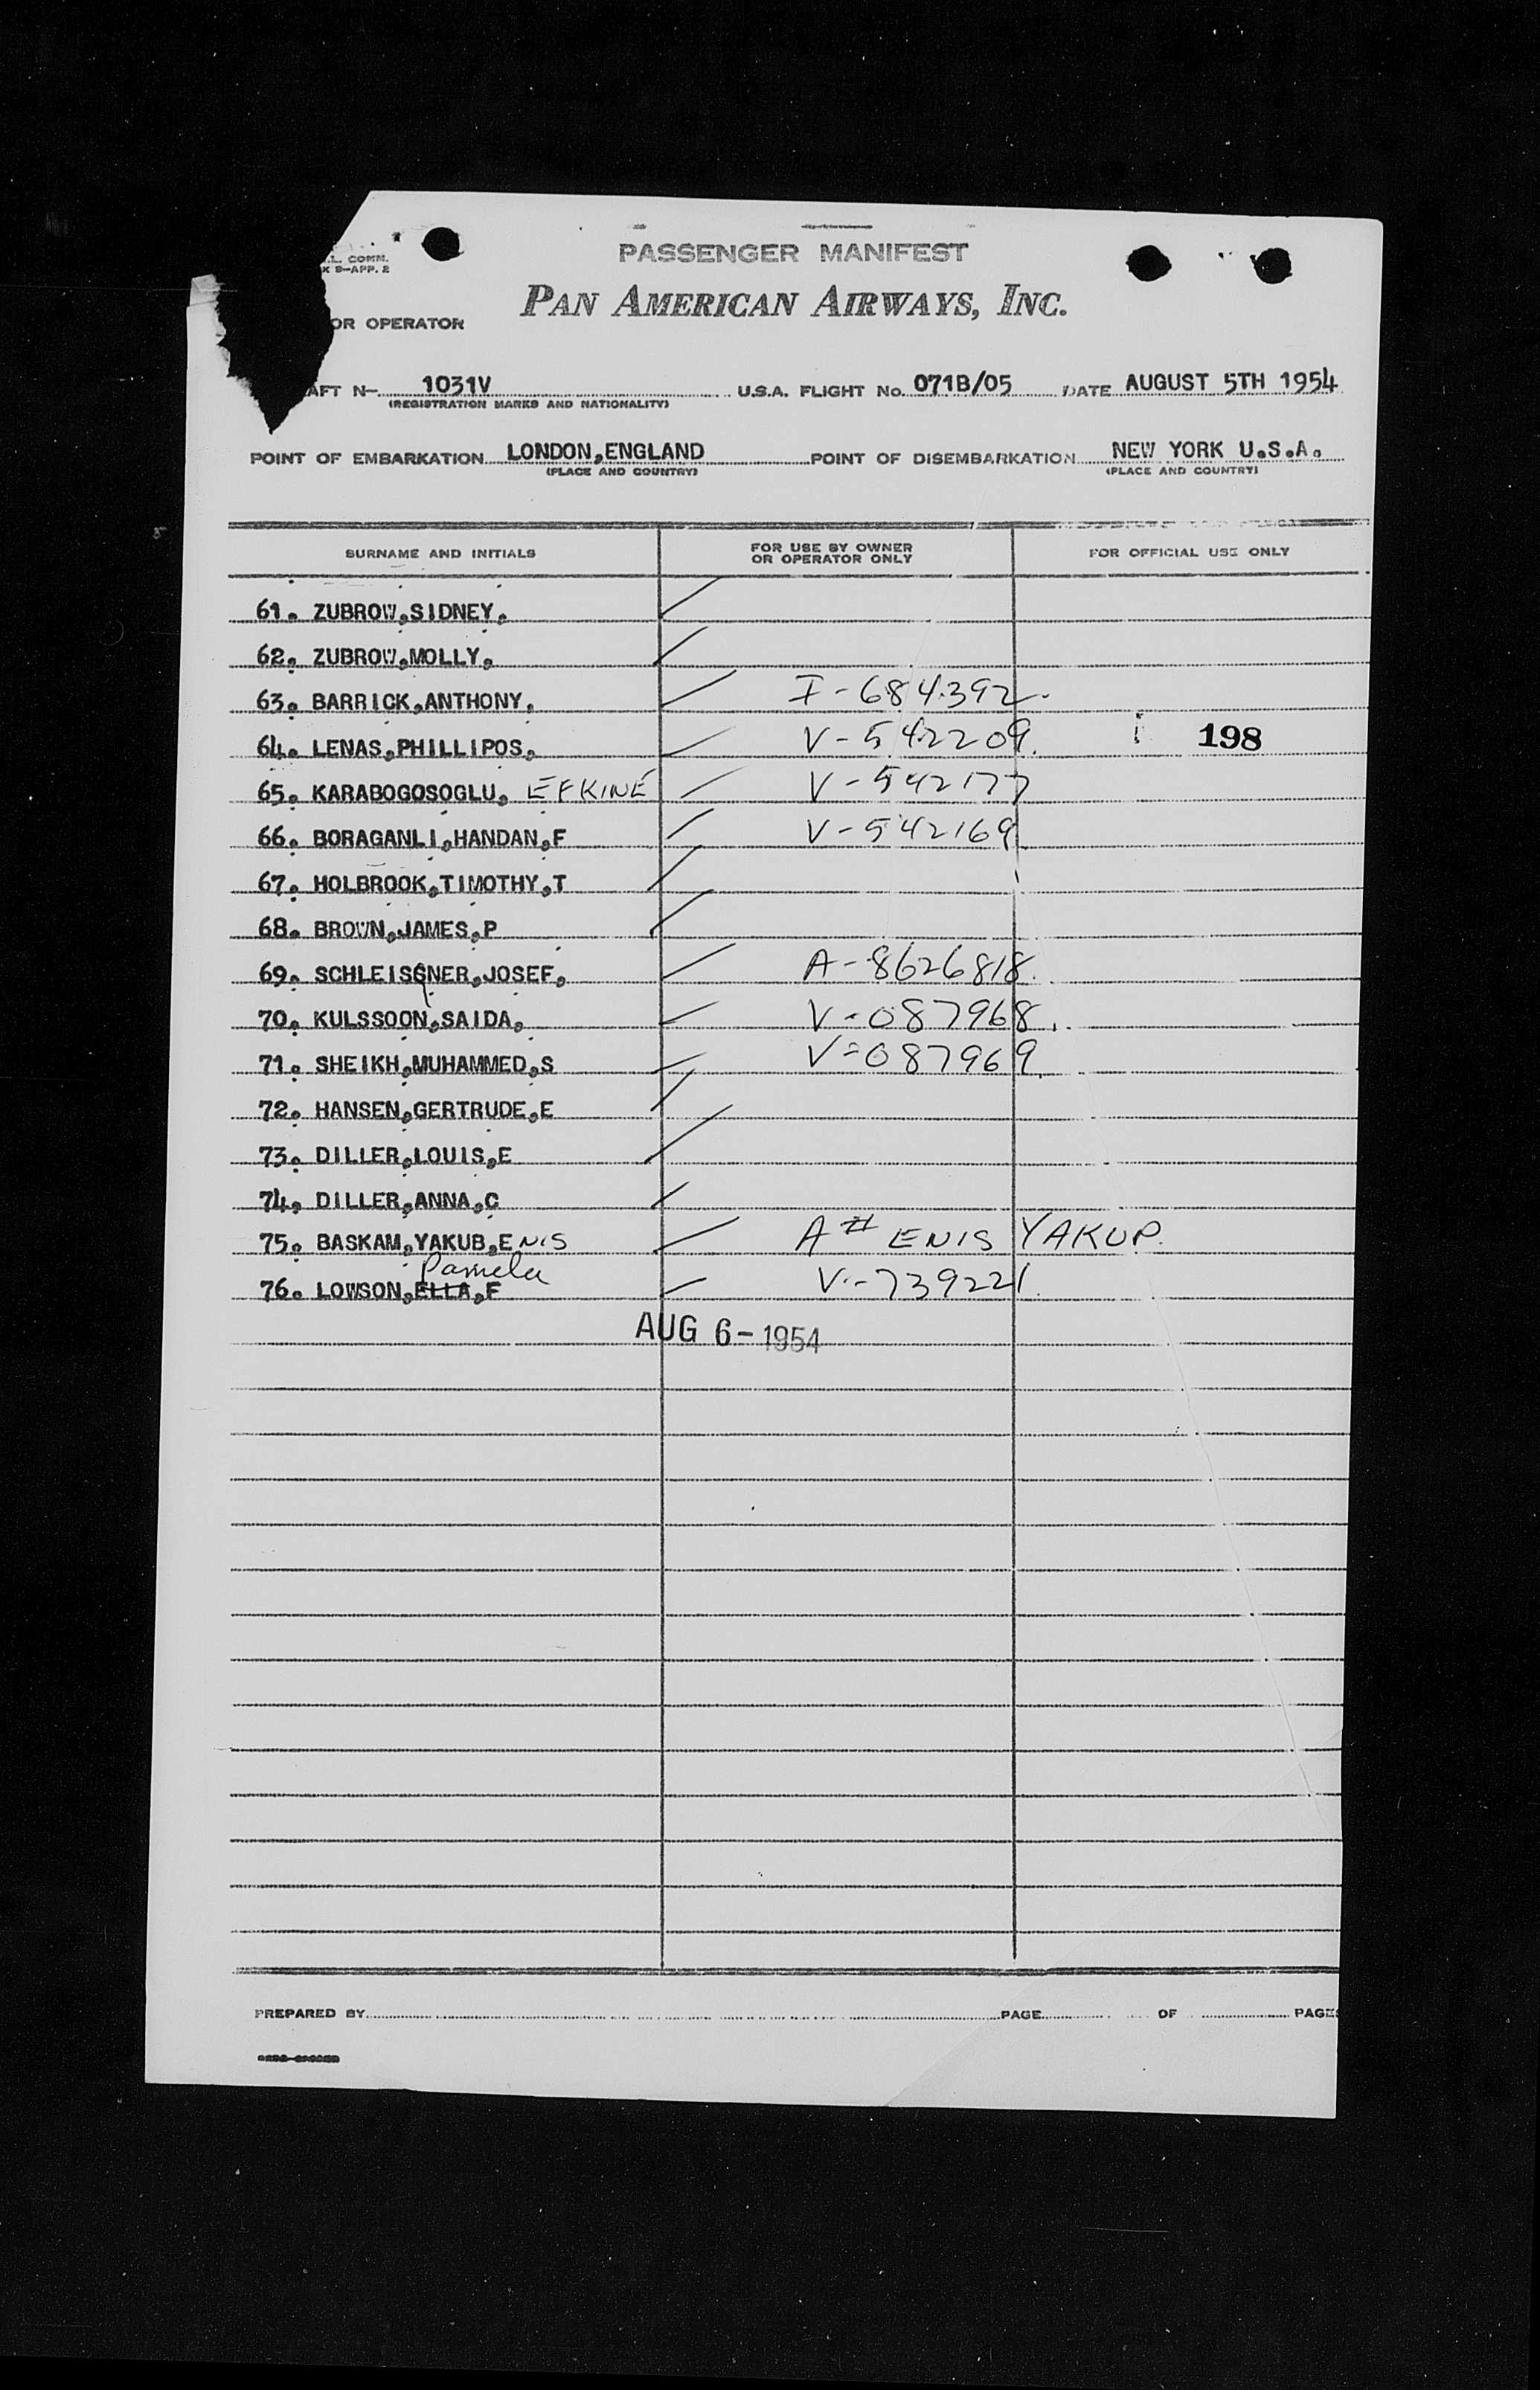 .L. COMM.
K 9-APP. 2
PASSENGER MANIFEST
PAN AMERICAN AIRWAYS, INC.
OR OPERATOR
AFT N- 1031V U.S.A. FLIGHT No. 071B/05 DATE AUGUST 5TH 1954
(REGISTRATION MARKS AND NATIONALITY)
POINT OF EMBARKATION LONDON,ENGLAND POINT OF DISEMBARKATION NEW YORK U.S.A.
(PLACE AND COUNTRY) (PLACE AND COUNTRY)
SURNAME AND INITIALS FOR USE BY OWNER OR OPERATOR ONLY FOR OFFICIAL USE ONLY
61. ZUBROW,SIDNEY.
62. ZUBROW,MOLLY.
63. BARRICK,ANTHONY. I-684392.
64. LENAS,PHILLIPOS. V-542209. 198
65. KARABOGOSOGLU, EFKINE V-542177
66. BORAGANLI,HANDAN,F V-542169
67. HOLBROOK,TIMOTHY,T
68. BROWN,JAMES,P
69. SCHLEISGNER,JOSEF. A-8626818.
70. KULSSOON,SAIDA. V-087968.
71. SHEIKH,MUHAMMED,S V-087969.
72. HANSEN,GERTRUDE,E
73. DILLER,LOUIS,E
74. DILLER,ANNA,C
75. BASKAM,YAKUB,ENIS A# ENIS YAKUP.
Pamela
76. LOWSON,ELLA,F V-739221.
AUG 6-1954
PREPARED BY PAGE OF PAGES